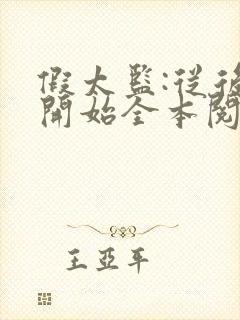 假太監:從後
開始全本閱
王亞平